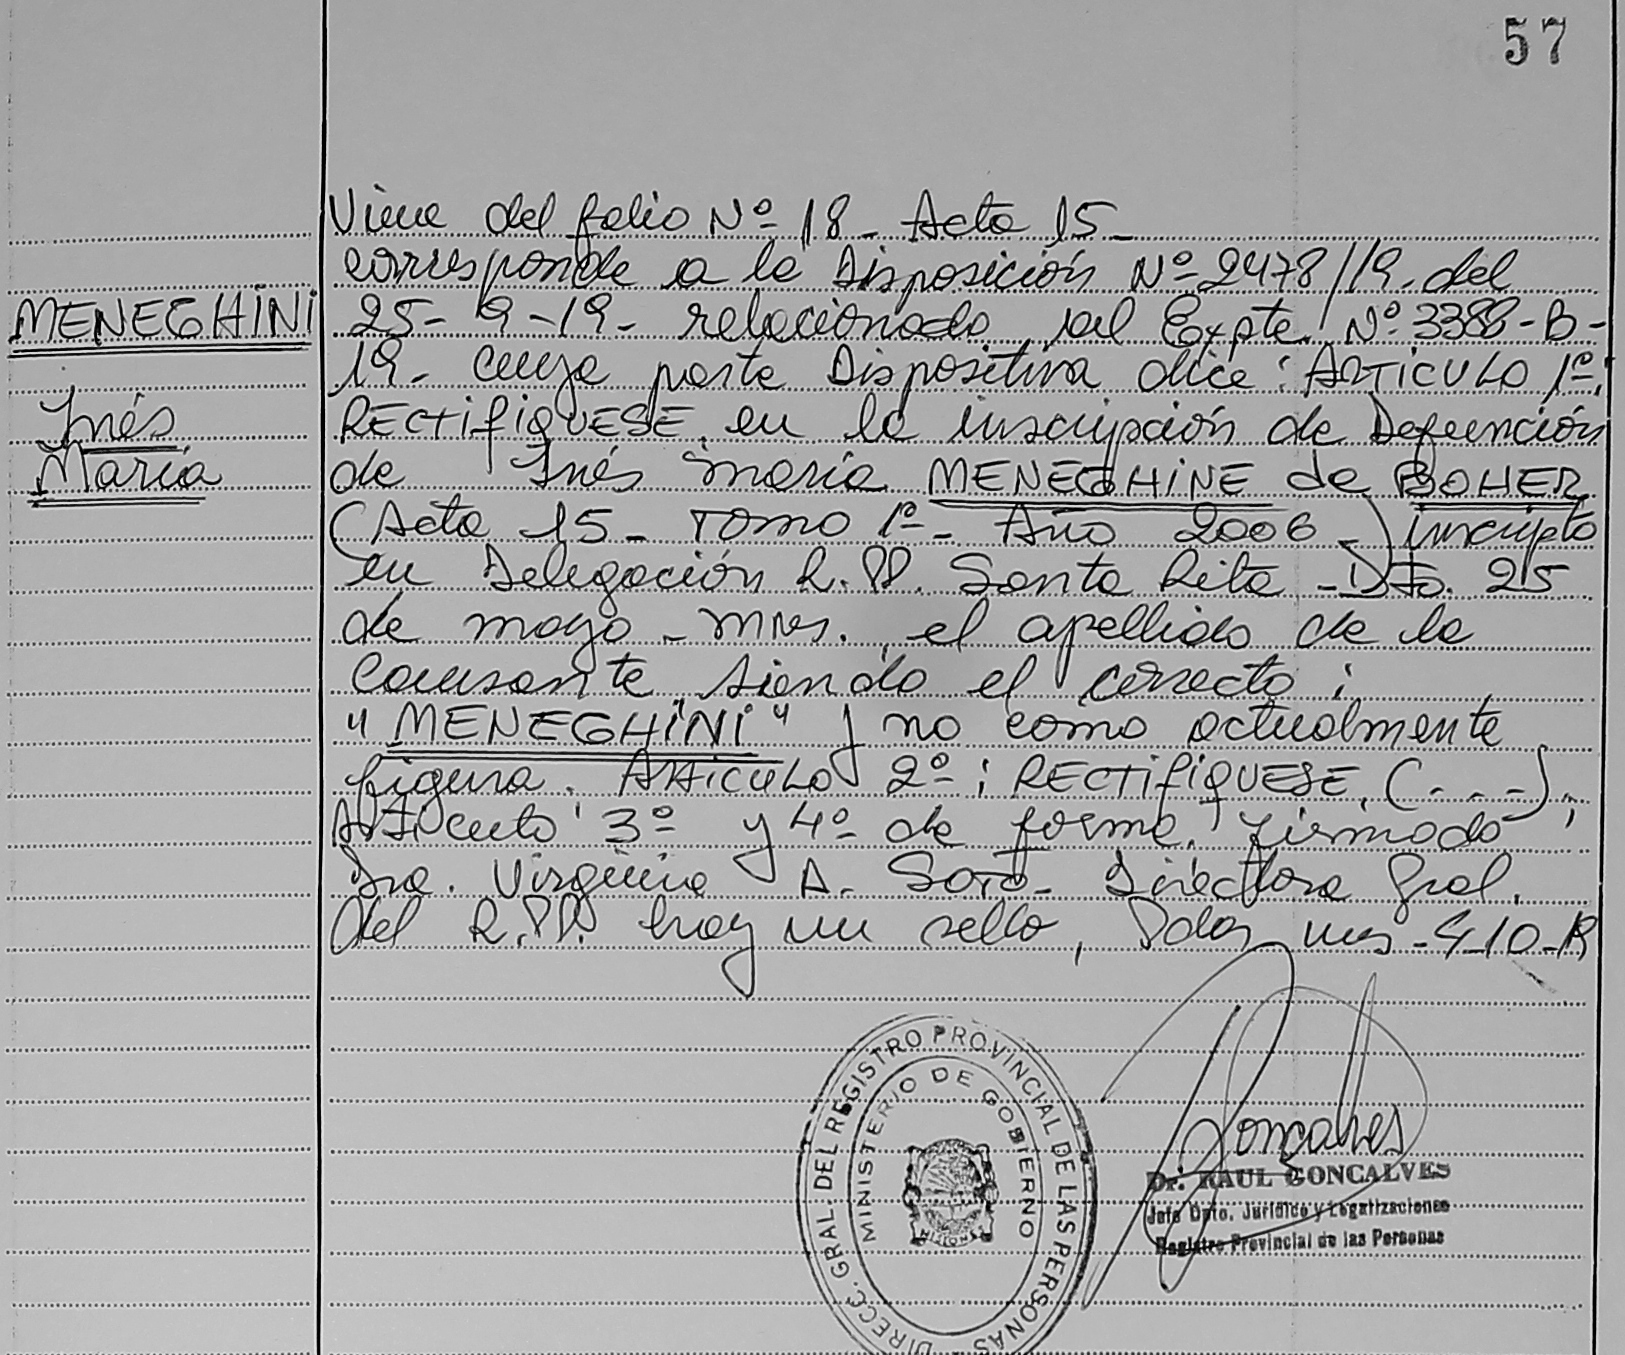 57
Viene del folio Nº 18 - Acta 15 -
corresponde a la Disposición Nº 2478/19. del
MENEGHINI
25 - 9 - 19 - relacionado al Expte. Nº 3388 - B -
19 - cuya parte Dispositiva dice: ARTICULO 1º:
Inés
RECTIFIQUESE, en la inscripción de Defunción
María
de Inés maría MENEGHINE de BOHER
(Acta 15 - TOMO 1º - Año 2006 -) inscripto
en Delegación R.PP. Santa Rita - Dto. 25
de mayo - mnes., el apellido de la
causante, siendo el correcto:
"MENEGHINI" y no como actualmente
figura. ARTICULO 2º: RECTIFIQUESE, (- - -),
Articulo 3º y 4º de forma. firmado
Dra. Virginia A. Soto - Directora Gral.
del R.PP. hay un sello, Pdas mns - 4-10-19
DIRECC. GRAL. DEL REGISTRO PROVINCIAL DE LAS PERSONAS
MINISTERIO DE GOBIERNO
MISIONES
Goncalves
Dr. RAUL GONCALVES
Jefe Dpto. Jurídico y Legalizaciones
Registro Provincial de las Personas